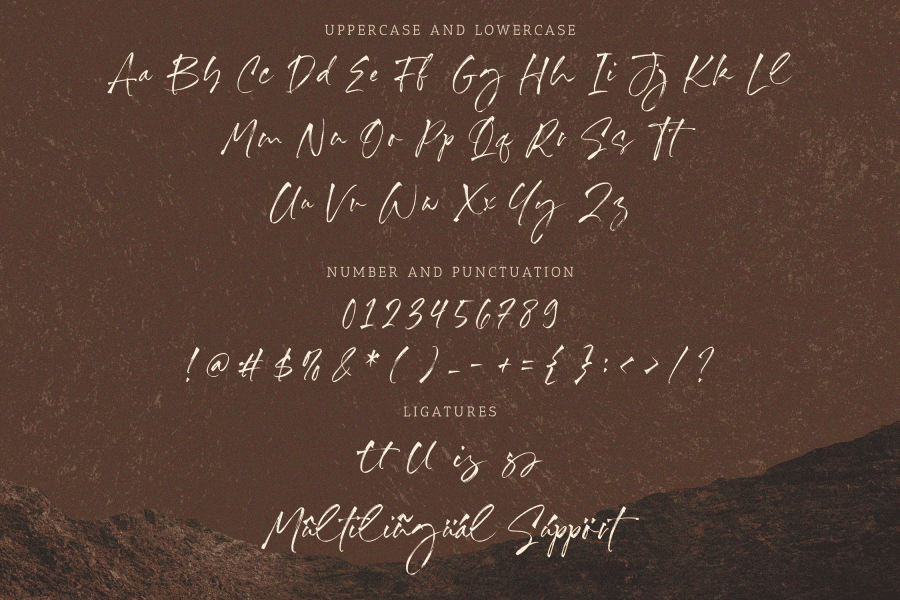 UPPERCASE AND LOWERCASE
Aa Bb Cc Dd Ee Ff Gg Hh Ii Jj Kk Ll
Mm Nn Oo Pp Qq Rr Ss Tt
Uu Vv Ww Xx Yy Zz
NUMBER AND PUNCTUATION
0123456789
! @ # $ % & * ( ) _ - + = { } : < > / ?
LIGATURES
tt ll is os
Mûltilïñgüál Súppört